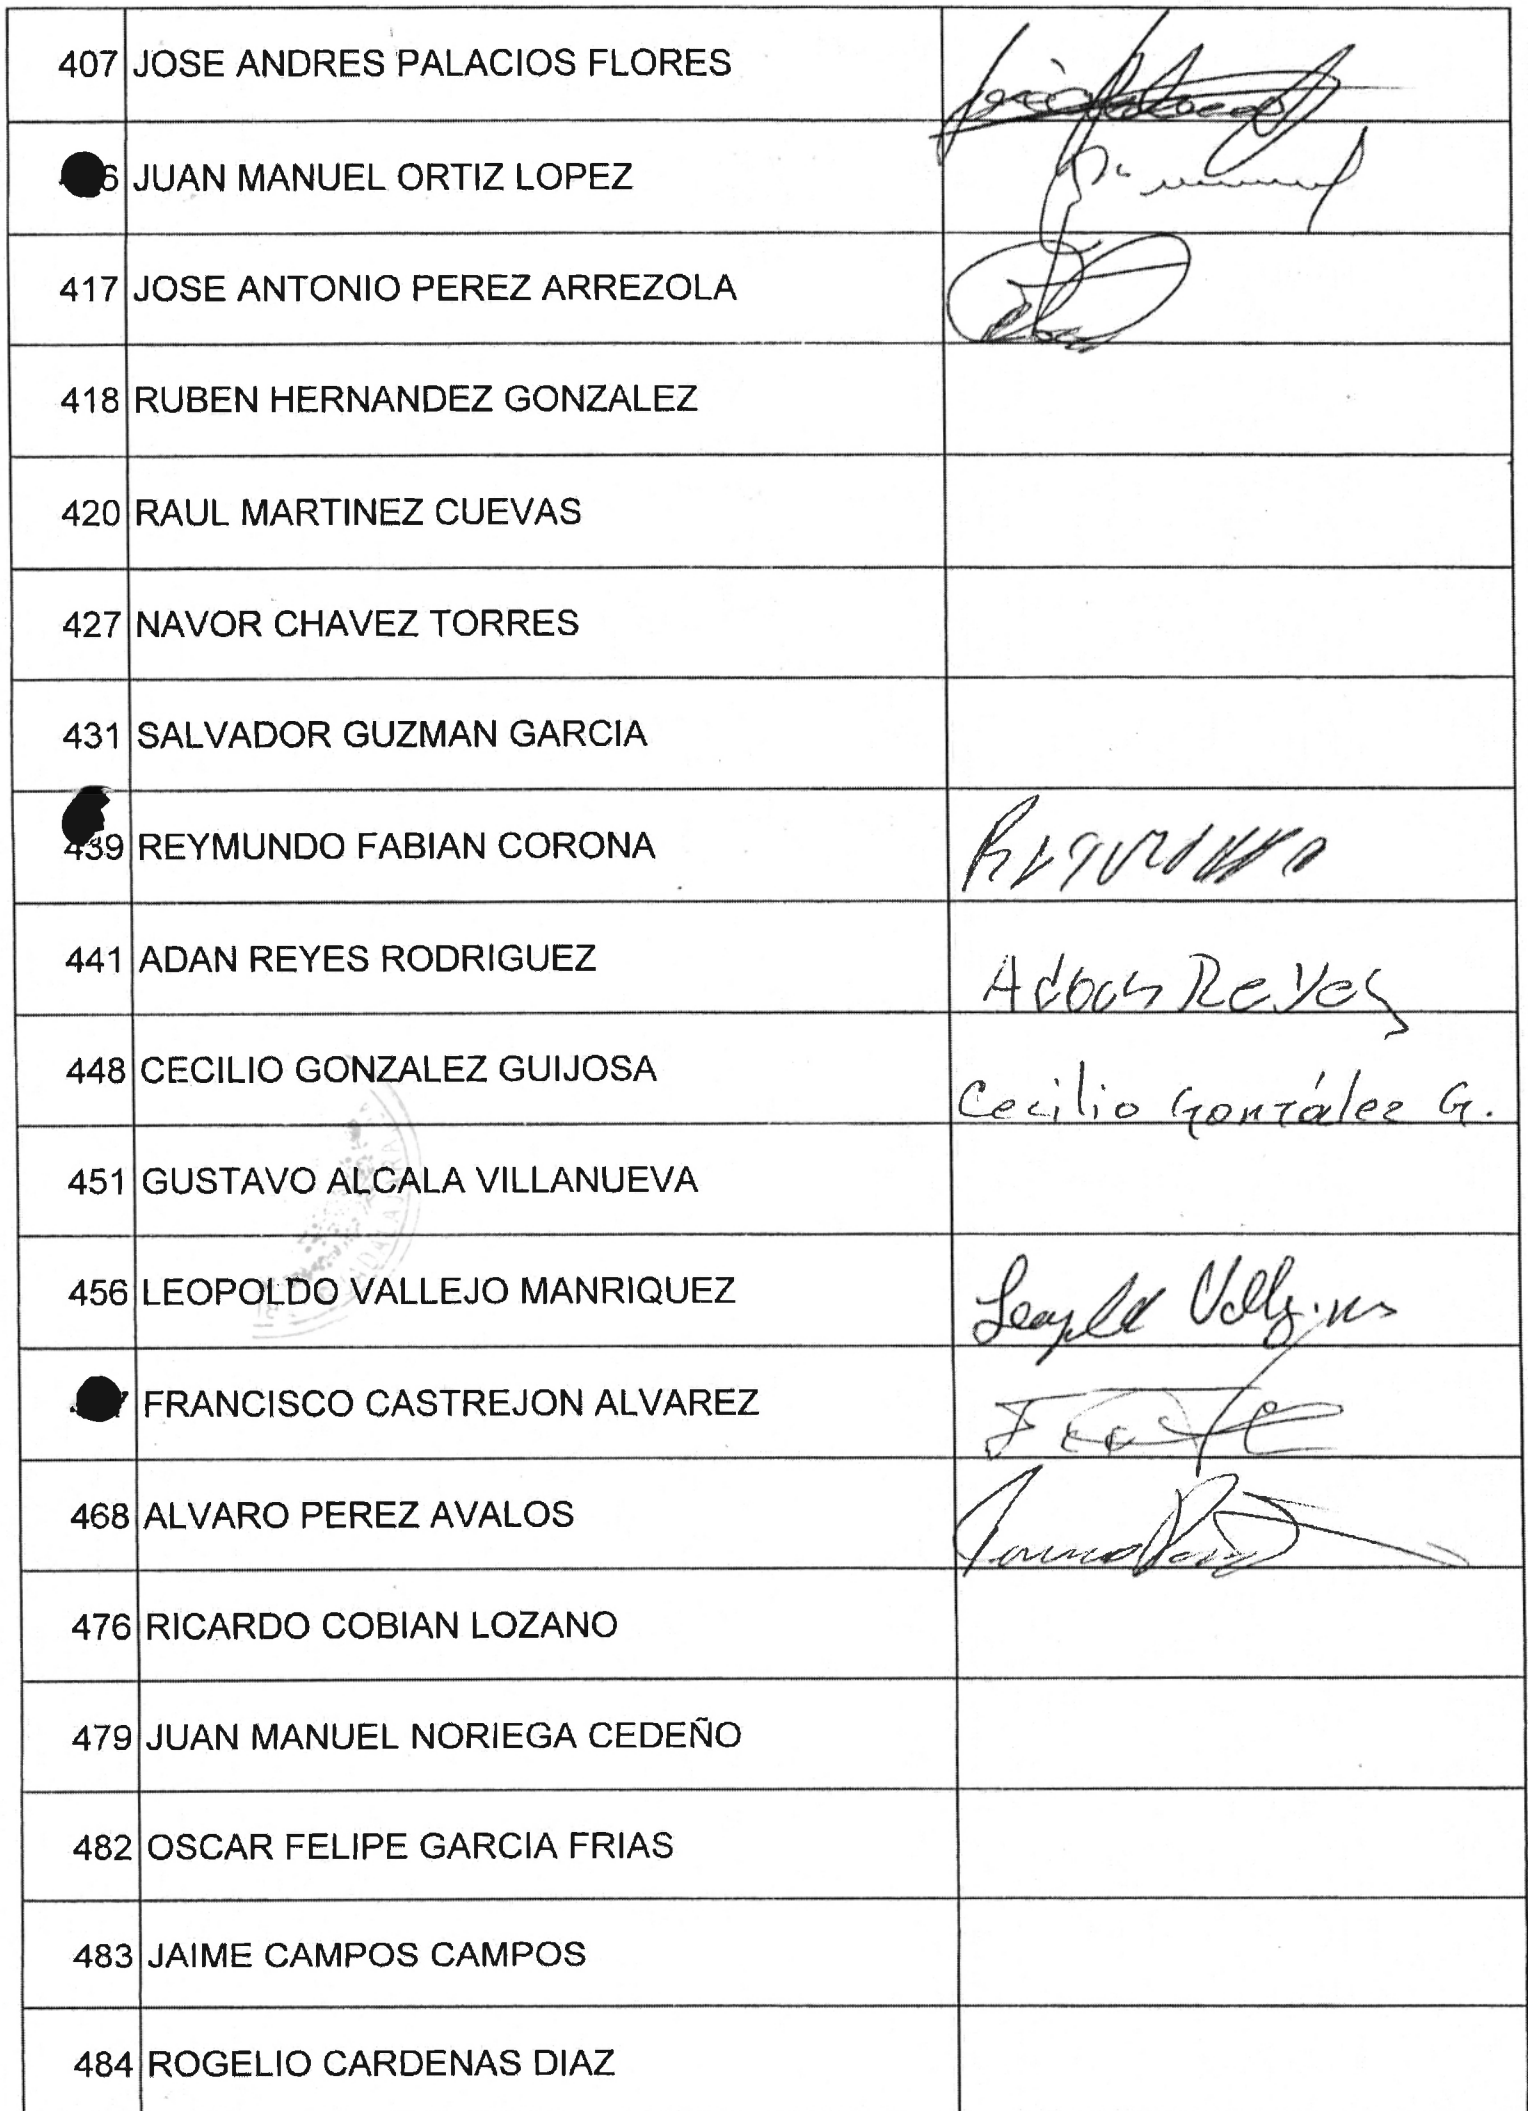 407 JOSE ANDRES PALACIOS FLORES
6 JUAN MANUEL ORTIZ LOPEZ
417 JOSE ANTONIO PEREZ ARREZOLA
418 RUBEN HERNANDEZ GONZALEZ
420 RAUL MARTINEZ CUEVAS
427 NAVOR CHAVEZ TORRES
431 SALVADOR GUZMAN GARCIA
439 REYMUNDO FABIAN CORONA
441 ADAN REYES RODRIGUEZ Adan Reyes
448 CECILIO GONZALEZ GUIJOSA Cecilio González G.
451 GUSTAVO ALCALA VILLANUEVA
456 LEOPOLDO VALLEJO MANRIQUEZ
FRANCISCO CASTREJON ALVAREZ
468 ALVARO PEREZ AVALOS
476 RICARDO COBIAN LOZANO
479 JUAN MANUEL NORIEGA CEDEÑO
482 OSCAR FELIPE GARCIA FRIAS
483 JAIME CAMPOS CAMPOS
484 ROGELIO CARDENAS DIAZ